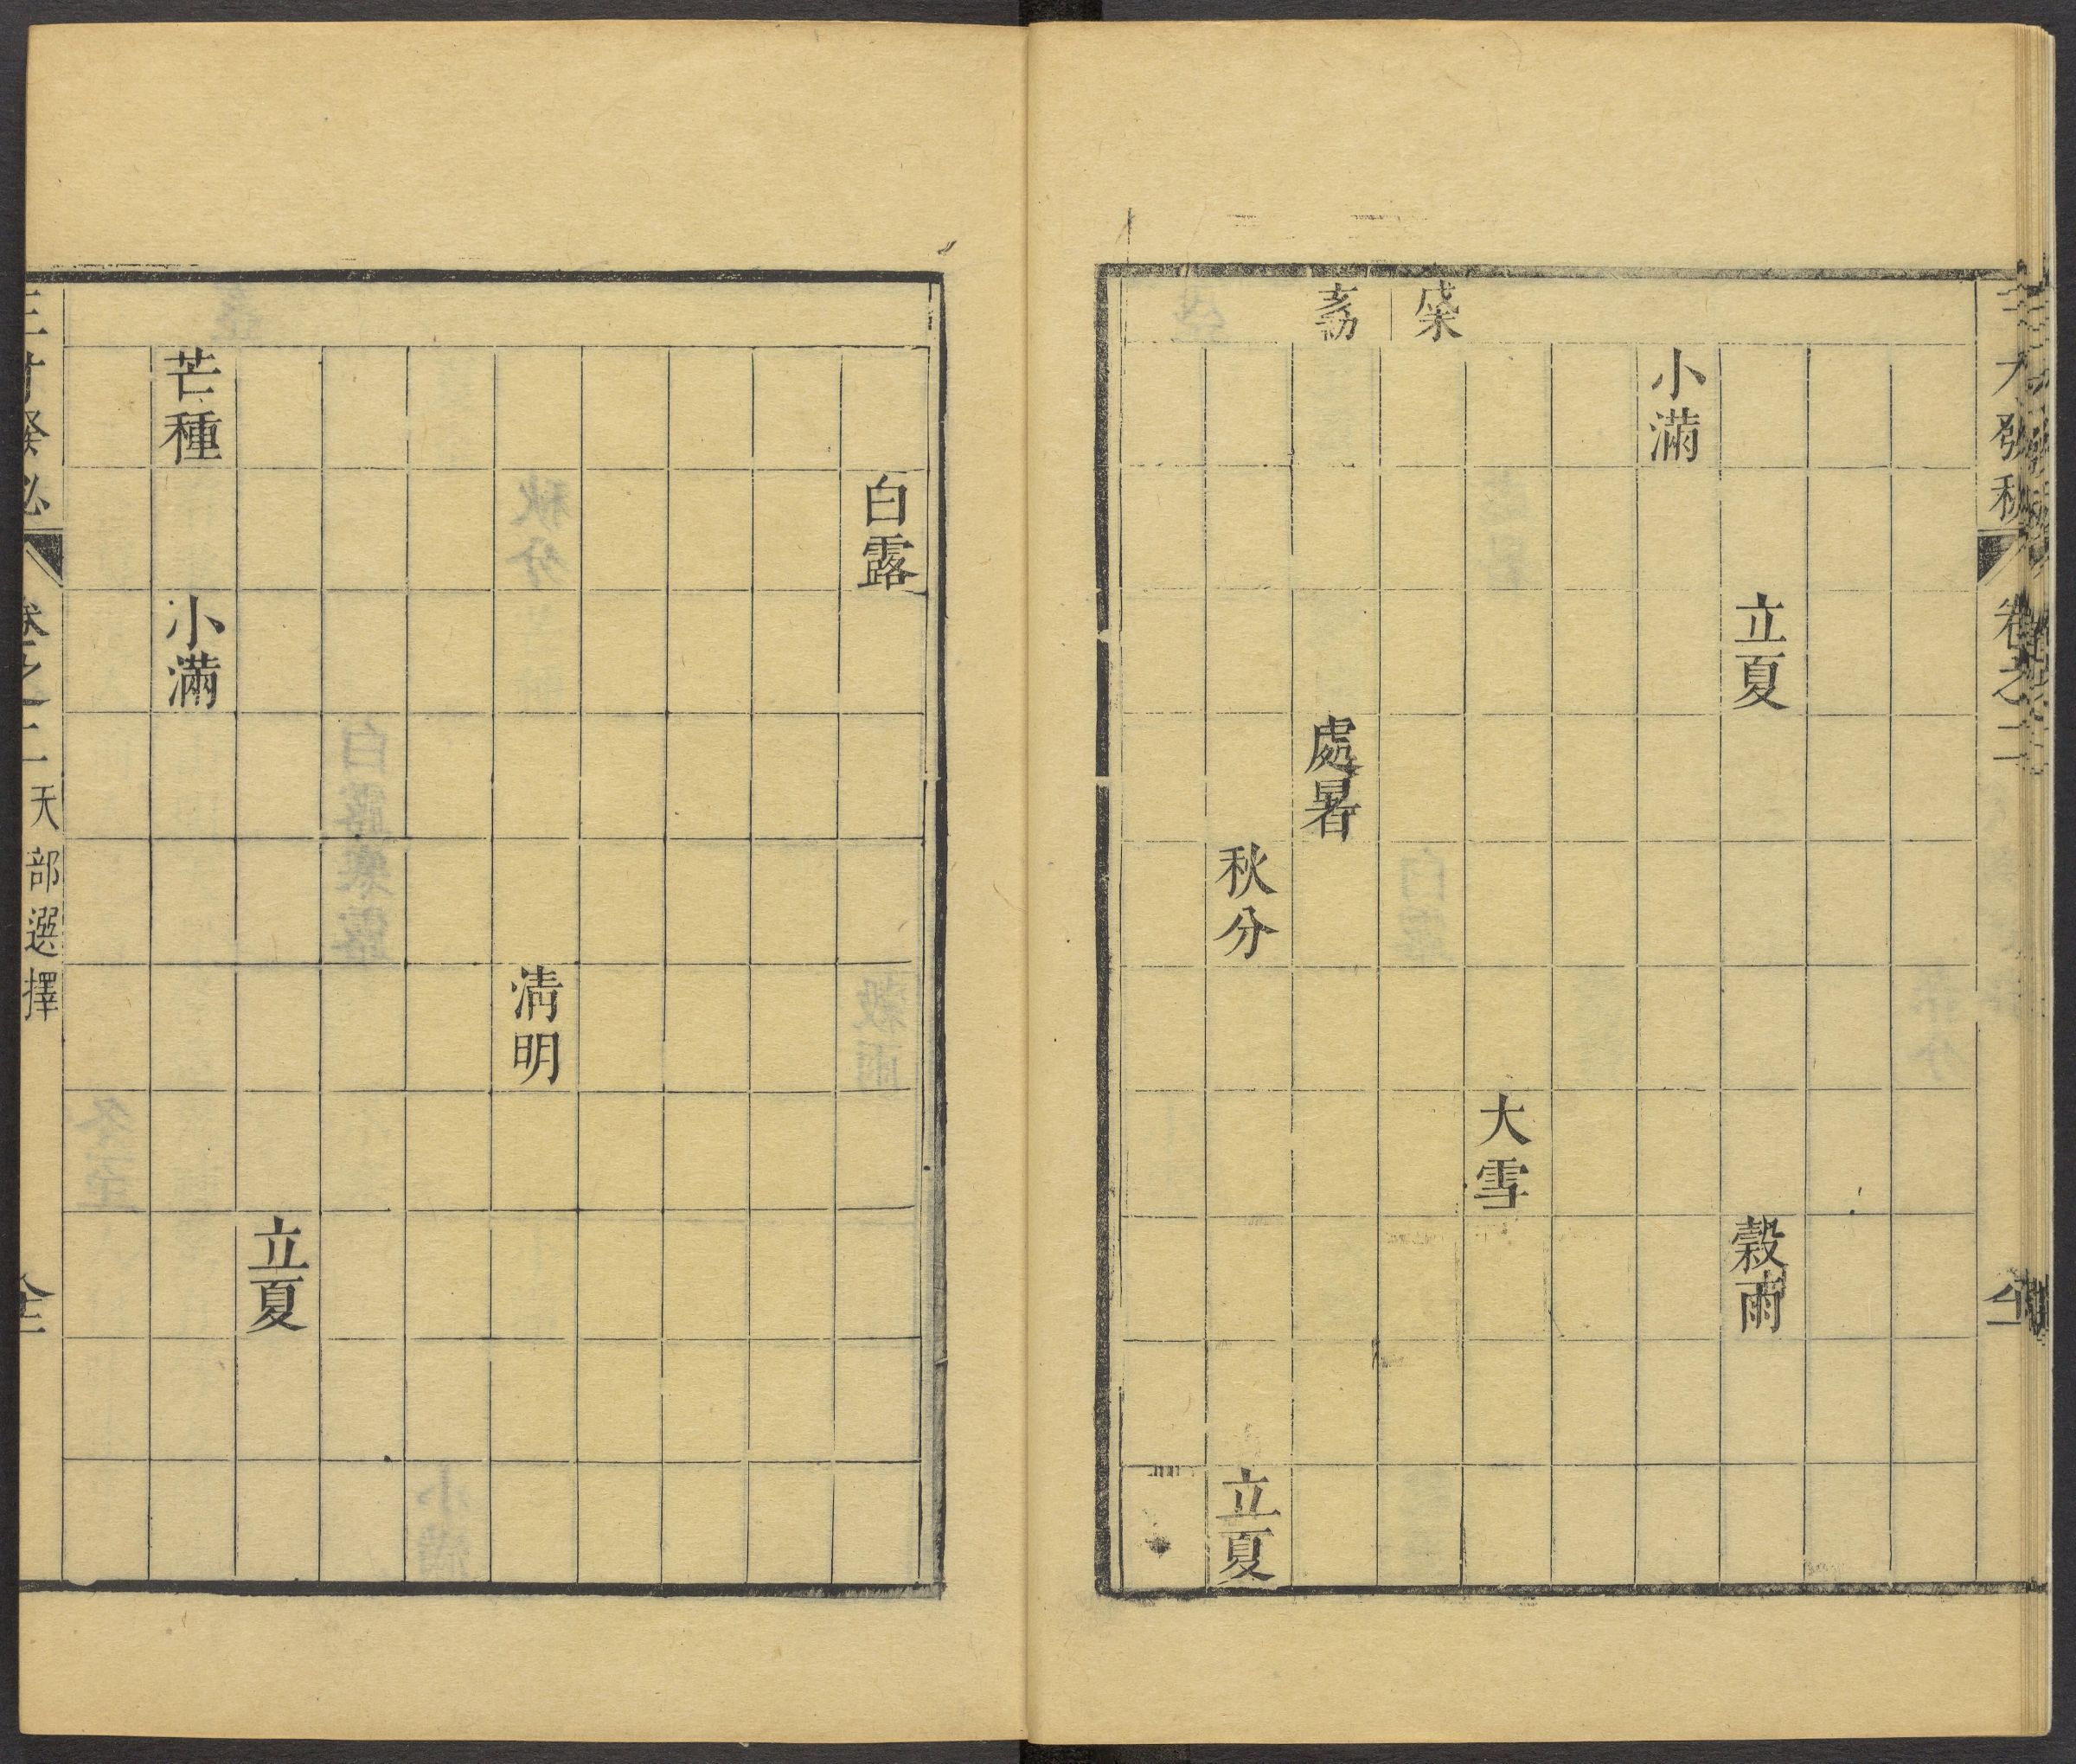 三才發秘 卷之二
立夏
穀雨
小滿
大雪
戌末
亥初
處暑
秋分
立夏
白露
清明
立夏
芒種
小滿
三才發秘 卷之二 天部選擇